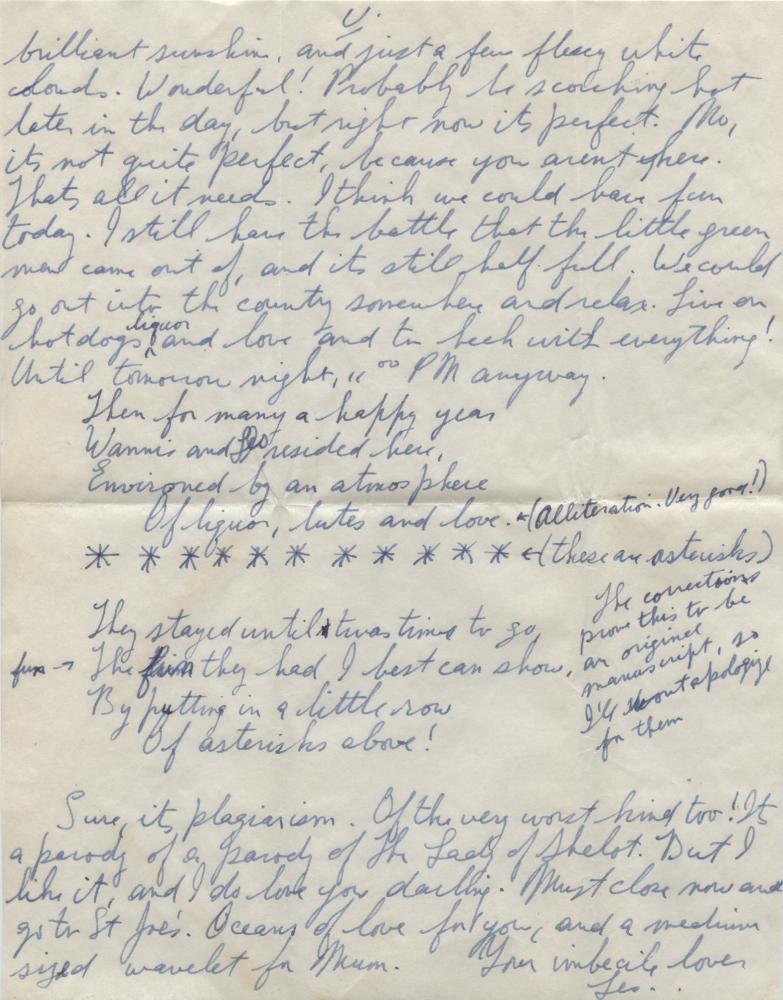 V.
brilliant sunshine, and just a few fleecy white
clouds. Wonderful! Probably be scorching hot
later in the day, but right now its perfect. No,
its not quite perfect, because you arent here.
Thats all it needs. I think we could have fun
today. I still have the bottle that the little green
men came out of, and its still half full. We could
go out into the country somewhere and relax. Live on
liquor
hotdogs ^ and love and to heck with everything!
Until tomorrow night, 11 00 PM anyway.
Then for many a happy year
Wannis and Leo resided here,
Environed by an atmosphere
Of liquor, lutes and love. ←(Alliteration. Very good!)
* * * * * * * * * * * ←(these are asterisks)
They stayed until twas time to go,
fun → The fun they had I best can show,
By putting in a little row
Of asterisks above!
The corrections
prove this to be
an original
manuscript, so
I'll not apologize
for them
Sure, its plagiarism. Of the very worst kind too! Its
a parody of a parody of The Lady of Shalot. But I
like it, and I do love you darling. Must close now and
go to St Joe's. Oceans of love for you, and a medium
sized wavelet for Mum. Your imbecile lover
Les.